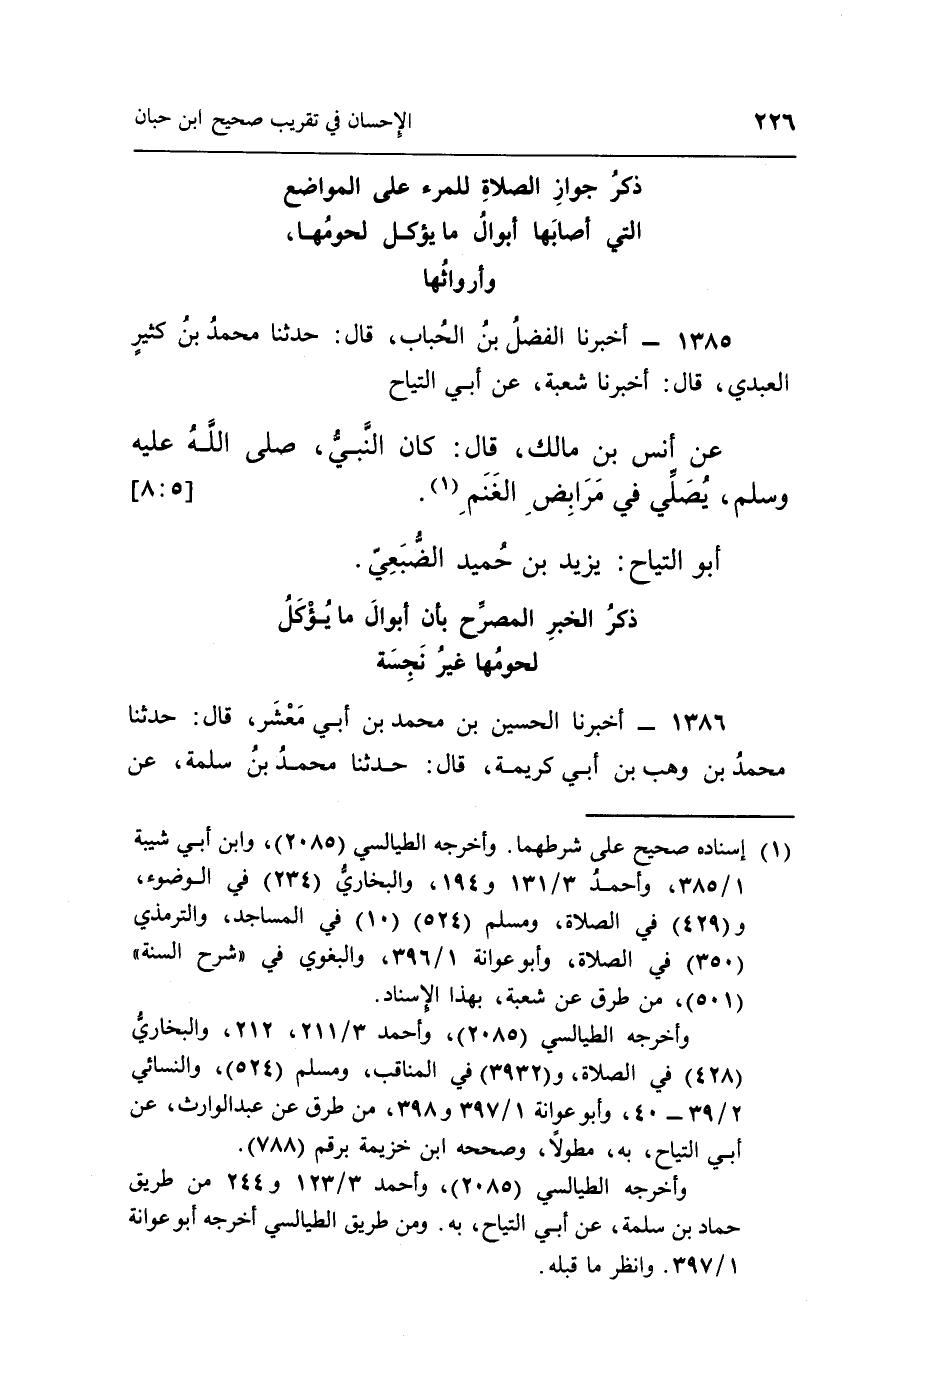 ٢٢٦ الإحسان في تقريب صحيح ابن حبان
ذكرُ جوازِ الصلاةِ للمرء على المواضع
التي أصابَها أبوالُ ما يؤكـل لحومُهـا،
وأرواثُها
١٣٨٥ ـ أخبرنا الفضلُ بنُ الحُباب، قال: حدثنا محمدُ بنُ كثيرٍ
العبدي، قال: أخبرنا شعبة، عن أبـي التياح
عن أنس بن مالك، قال: كان النَّبـيُّ، صلى اللَّـهُ عليه
وسلم، يُصَلِّي في مَرَابِضِ الغَنَمِ(١). [٨:٥]
أبو التياح: يزيد بن حُميد الضُّبَعِيّ.
ذكرُ الخبرِ المصرِّح بأن أبوالَ ما يُـؤْكَلُ
لحومُها غيرُ نَجِسَة
١٣٨٦ ـ أخبرنا الحسين بن محمد بن أبـي مَعْشَر، قال: حدثنا
محمدُ بن وهب بن أبـي كريمـة، قال: حـدثنا محمـدُ بنُ سلمة، عن
(١) إسناده صحيح على شرطهما. وأخرجه الطيالسي (٢٠٨٥)، وابن أبـي شيبة
٣٨٥/١، وأحمـدُ ١٣١/٣ و١٩٤، والبخاريُّ (٢٣٤) في الـوضوء،
و(٤٢٩) في الصلاة، ومسلم (٥٢٤) (١٠) في المساجد، والترمذي
(٣٥٠) في الصلاة، وأبو عوانة ٣٩٦/١، والبغوي في «شرح السنة»
(٥٠١)، من طرق عن شعبة، بهذا الإسناد.
وأخرجه الطيالسي (٢٠٨٥)، وأحمد ٢١١/٣، ٢١٢، والبخاريُّ
(٤٢٨) في الصلاة، و(٣٩٣٢) في المناقب، ومسلم (٥٢٤)، والنسائي
٣٩/٢ ـ ٤٠، وأبو عوانة ٣٩٧/١ و٣٩٨، من طرق عن عبدالوارث، عن
أبـي التياح، به، مطولاً، وصححه ابن خزيمة برقم (٧٨٨).
وأخرجه الطيالسي (٢٠٨٥)، وأحمد ١٢٣/٣ و٢٤٤ من طريق
حماد بن سلمة، عن أبـي التياح، به. ومن طريق الطيالسي أخرجه أبو عوانة
٣٩٧/١. وانظر ما قبله.